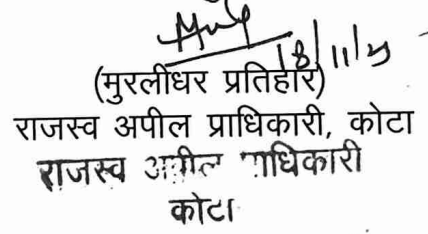 18/11/25
(मुरलीधर प्रतिहार)
राजस्व अपील प्राधिकारी, कोटा
राजस्व अपील प्राधिकारी
कोटा